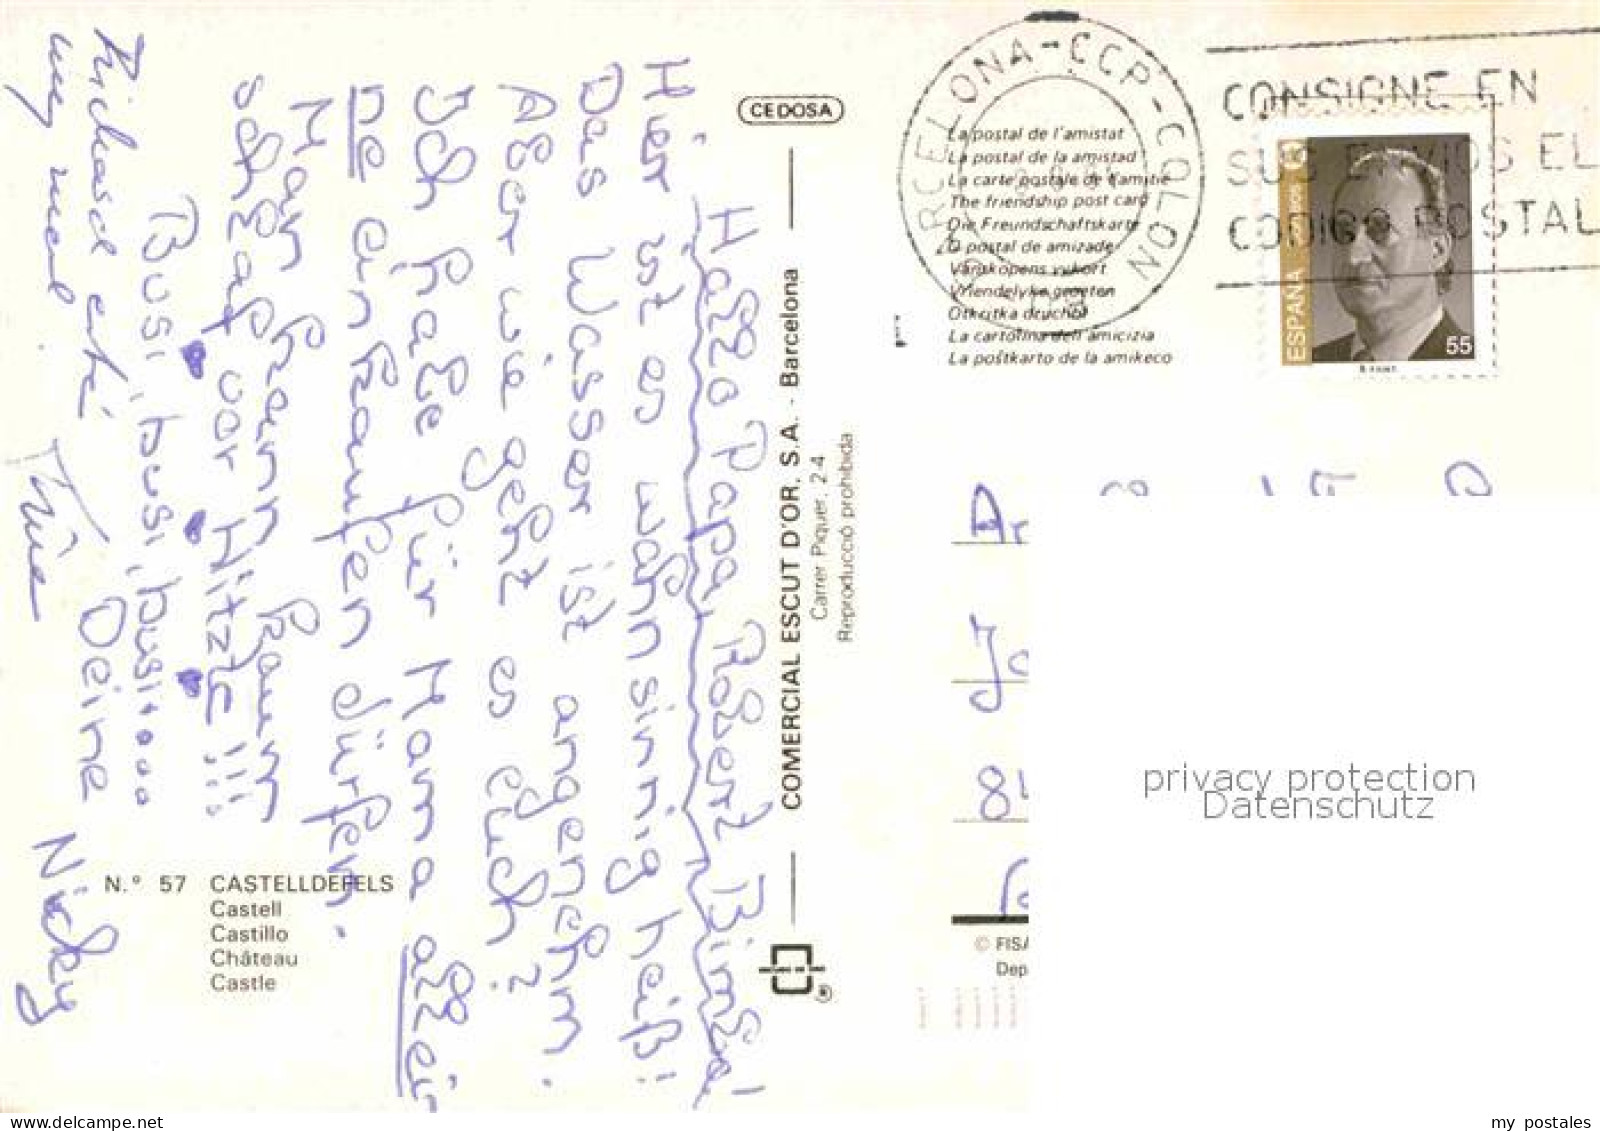 Hallo Papa, Robert, Bimba!
Hier ist es wahnsinnig heiß!
Das Wasser ist angenehm.
Aber wie geht es euch?
Ich habe für Mama allei
ne einkaufen dürfen.
Man kann kaum
schlaf vor Hitze!!!
Busi, busi, busi.....
Deine
Nicky
CEDOSA
COMERCIAL ESCUT D'OR. S.A. - Barcelona
Carrer Piquer, 2-4
Reproducció prohibida
N.° 57 CASTELLDEFELS
Castell
Castillo
Château
Castle
La postal de l'amistat
La postal de la amistad
La carte postale de l'amitié
The friendship post card
Die Freundschaftskarte
O postal de amizade
Vänskapens vykort
Vriendelyke groeten
Otkritka druchbi
La cartolina dell'amicizia
La poŝtkarto de la amikeco
BARCELONA-CCP-COLON
CONSIGNE EN
SUS ENVIOS EL
CODIGO POSTAL
ESPAÑA
55
© FISA
Dep
privacy protection
Datenschutz
my postales